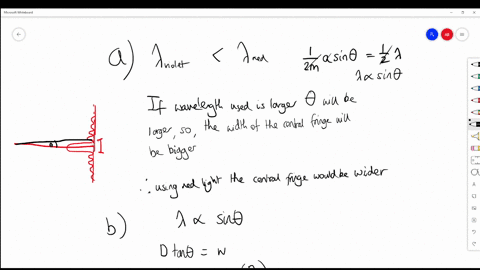 Microsoft Whiteboard
a) λviolet < λred
1/2m α sinθ = 1/2 λ
λ α sinθ
If wavelength used is larger θ will be
larger, so, the width of the central fringe will
be bigger
θ
I
∴ using red light the central fringe would be wider
b) λ ∝ sinθ
D tanθ = w